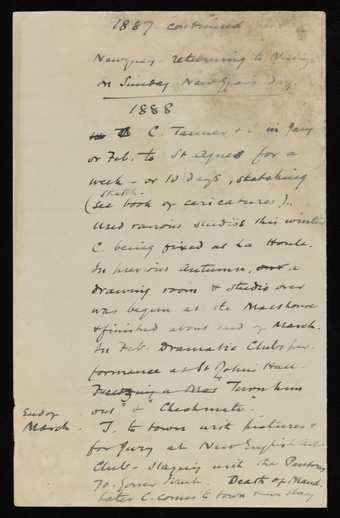 1887 continued
Newquay - returning to
on Sunday New Year's Day
1888
C. Tanner & in Jany
or Feb. to St Agnes for a
week - or 10 days, sketching
(see sketch book of caricatures).
Used various studios this winter
C. being fixed at La Houle.
In previous autumn, a
drawing room & studio over
was begun at the Malthouse
& finished about end of March.
In Feb. Dramatic Club's per-
formance at St Johns Hall
"Turn him
out" & "Checkmate".
End of
March. T. to town with pictures &
for Jury at New English Art
Club - staying with the
70. Gower Street. Death of Maud.
Later C. comes to town & we stay